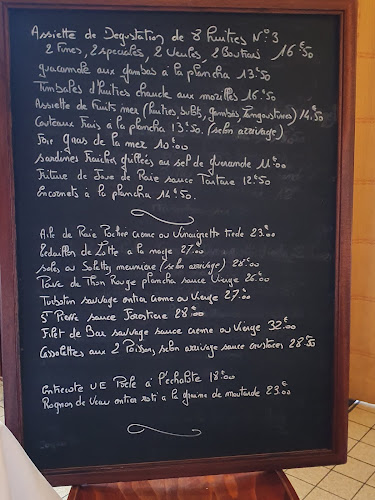 Assiette de Degustation de 8 huitres N° 3
2 Fines, 2 speciales, 2 Veules, 2 Boutrais 16€50
guacamole aux gambas à la plancha 13€50
Timbales d'huitres chaude aux morilles 16€50
Assiette de Fruits mer (huitres, bulots, gambas, langoustines) 14€50
Couteaux Frais à la plancha 13€50 (selon arrivage)
Foie Gras de la mer 10€00
Sardines Fraîches grillées au sel de guerande 11€00
Friture de Joue de Raie sauce Tartare 12€50
Encornets à la plancha 14€50
Aile de Raie Pochee creme ou Vinaigrette tiede 23€00
Médaillon de Lotte a la 27€00
soles ou Solettes meuniere (selon arrivage) 28€00
Pavé de Thon Rouge plancha sauce Vierge 26€00
Turbotin sauvage entier creme ou Vierge 27€00
St Pierre sauce Forestiere 28€00
Filet de Bar sauvage sauce creme ou Vierge 32€00
Cassolettes aux 2 Poisson, selon arrivage sauce crustaces 28€50
Entrecote UE Poele à l'échalote 18€00
Rognon de Veau entier roti a la graine de moutarde 23€00